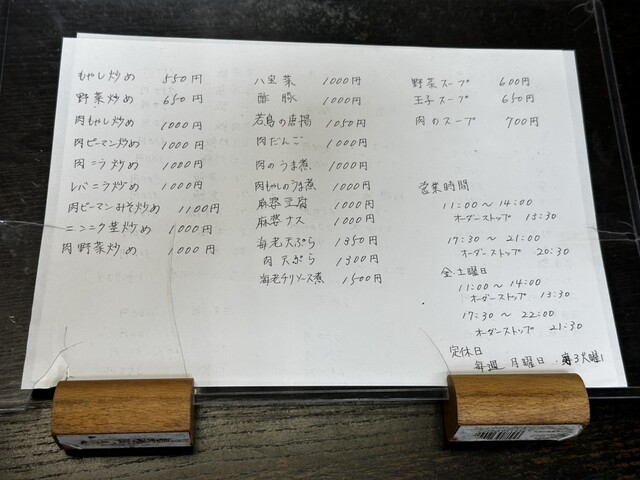 もやし炒め 550円
野菜炒め 650円
肉もやし炒め 1000円
肉ピーマン炒め 1000円
肉ニラ炒め 1000円
レバニラ炒め 1000円
肉ピーマンみそ炒め 1100円
ニンニク茎炒め 1000円
肉野菜炒め 1000円
八宝菜 1000円
酢豚 1000円
若鳥の唐揚 1050円
肉だんご 1000円
肉のうま煮 1000円
肉もやしのうま煮 1000円
麻婆豆腐 1000円
麻婆ナス 1000円
海老天ぷら 1350円
肉天ぷら 1300円
海老チリソース煮 1500円
野菜スープ 600円
玉子スープ 650円
肉のスープ 700円
営業時間
11:00〜14:00
オーダーストップ 13:30
17:30〜21:00
オーダーストップ 20:30
金・土曜日
11:00〜14:00
オーダーストップ 13:30
17:30〜22:00
オーダーストップ 21:30
定休日
毎週 月曜日 第3火曜